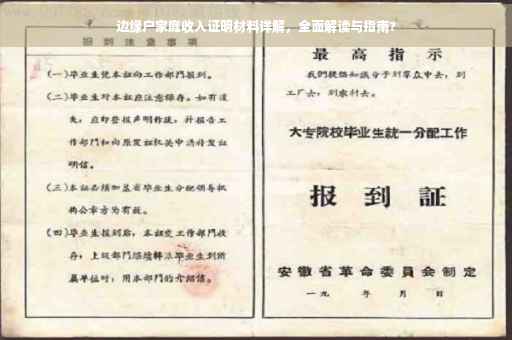 边缘户家庭收入证明材料详解，全面解读与指南？
报到注意事项
(一)毕业生凭本证向工作部门报到。
(二)毕业生对本证应注意保存。如有遗
失，应即登报声明作废，并报告工
作部门和向原发证机关申请补发证
明信。
(三)本证必须加盖省毕业生分配领导机
构公章方为有效。
(四)毕业生报到后，本证交工作部门收
存；上级部门继续转派毕业生到所
属单位时，用本部门的介绍信。
最高指示
我们提倡知识分子到群众中去，到
工厂去，到农村去。
大专院校毕业生統一分配工作
报到証
安徽省革命委員会制定
一九　年　月　日